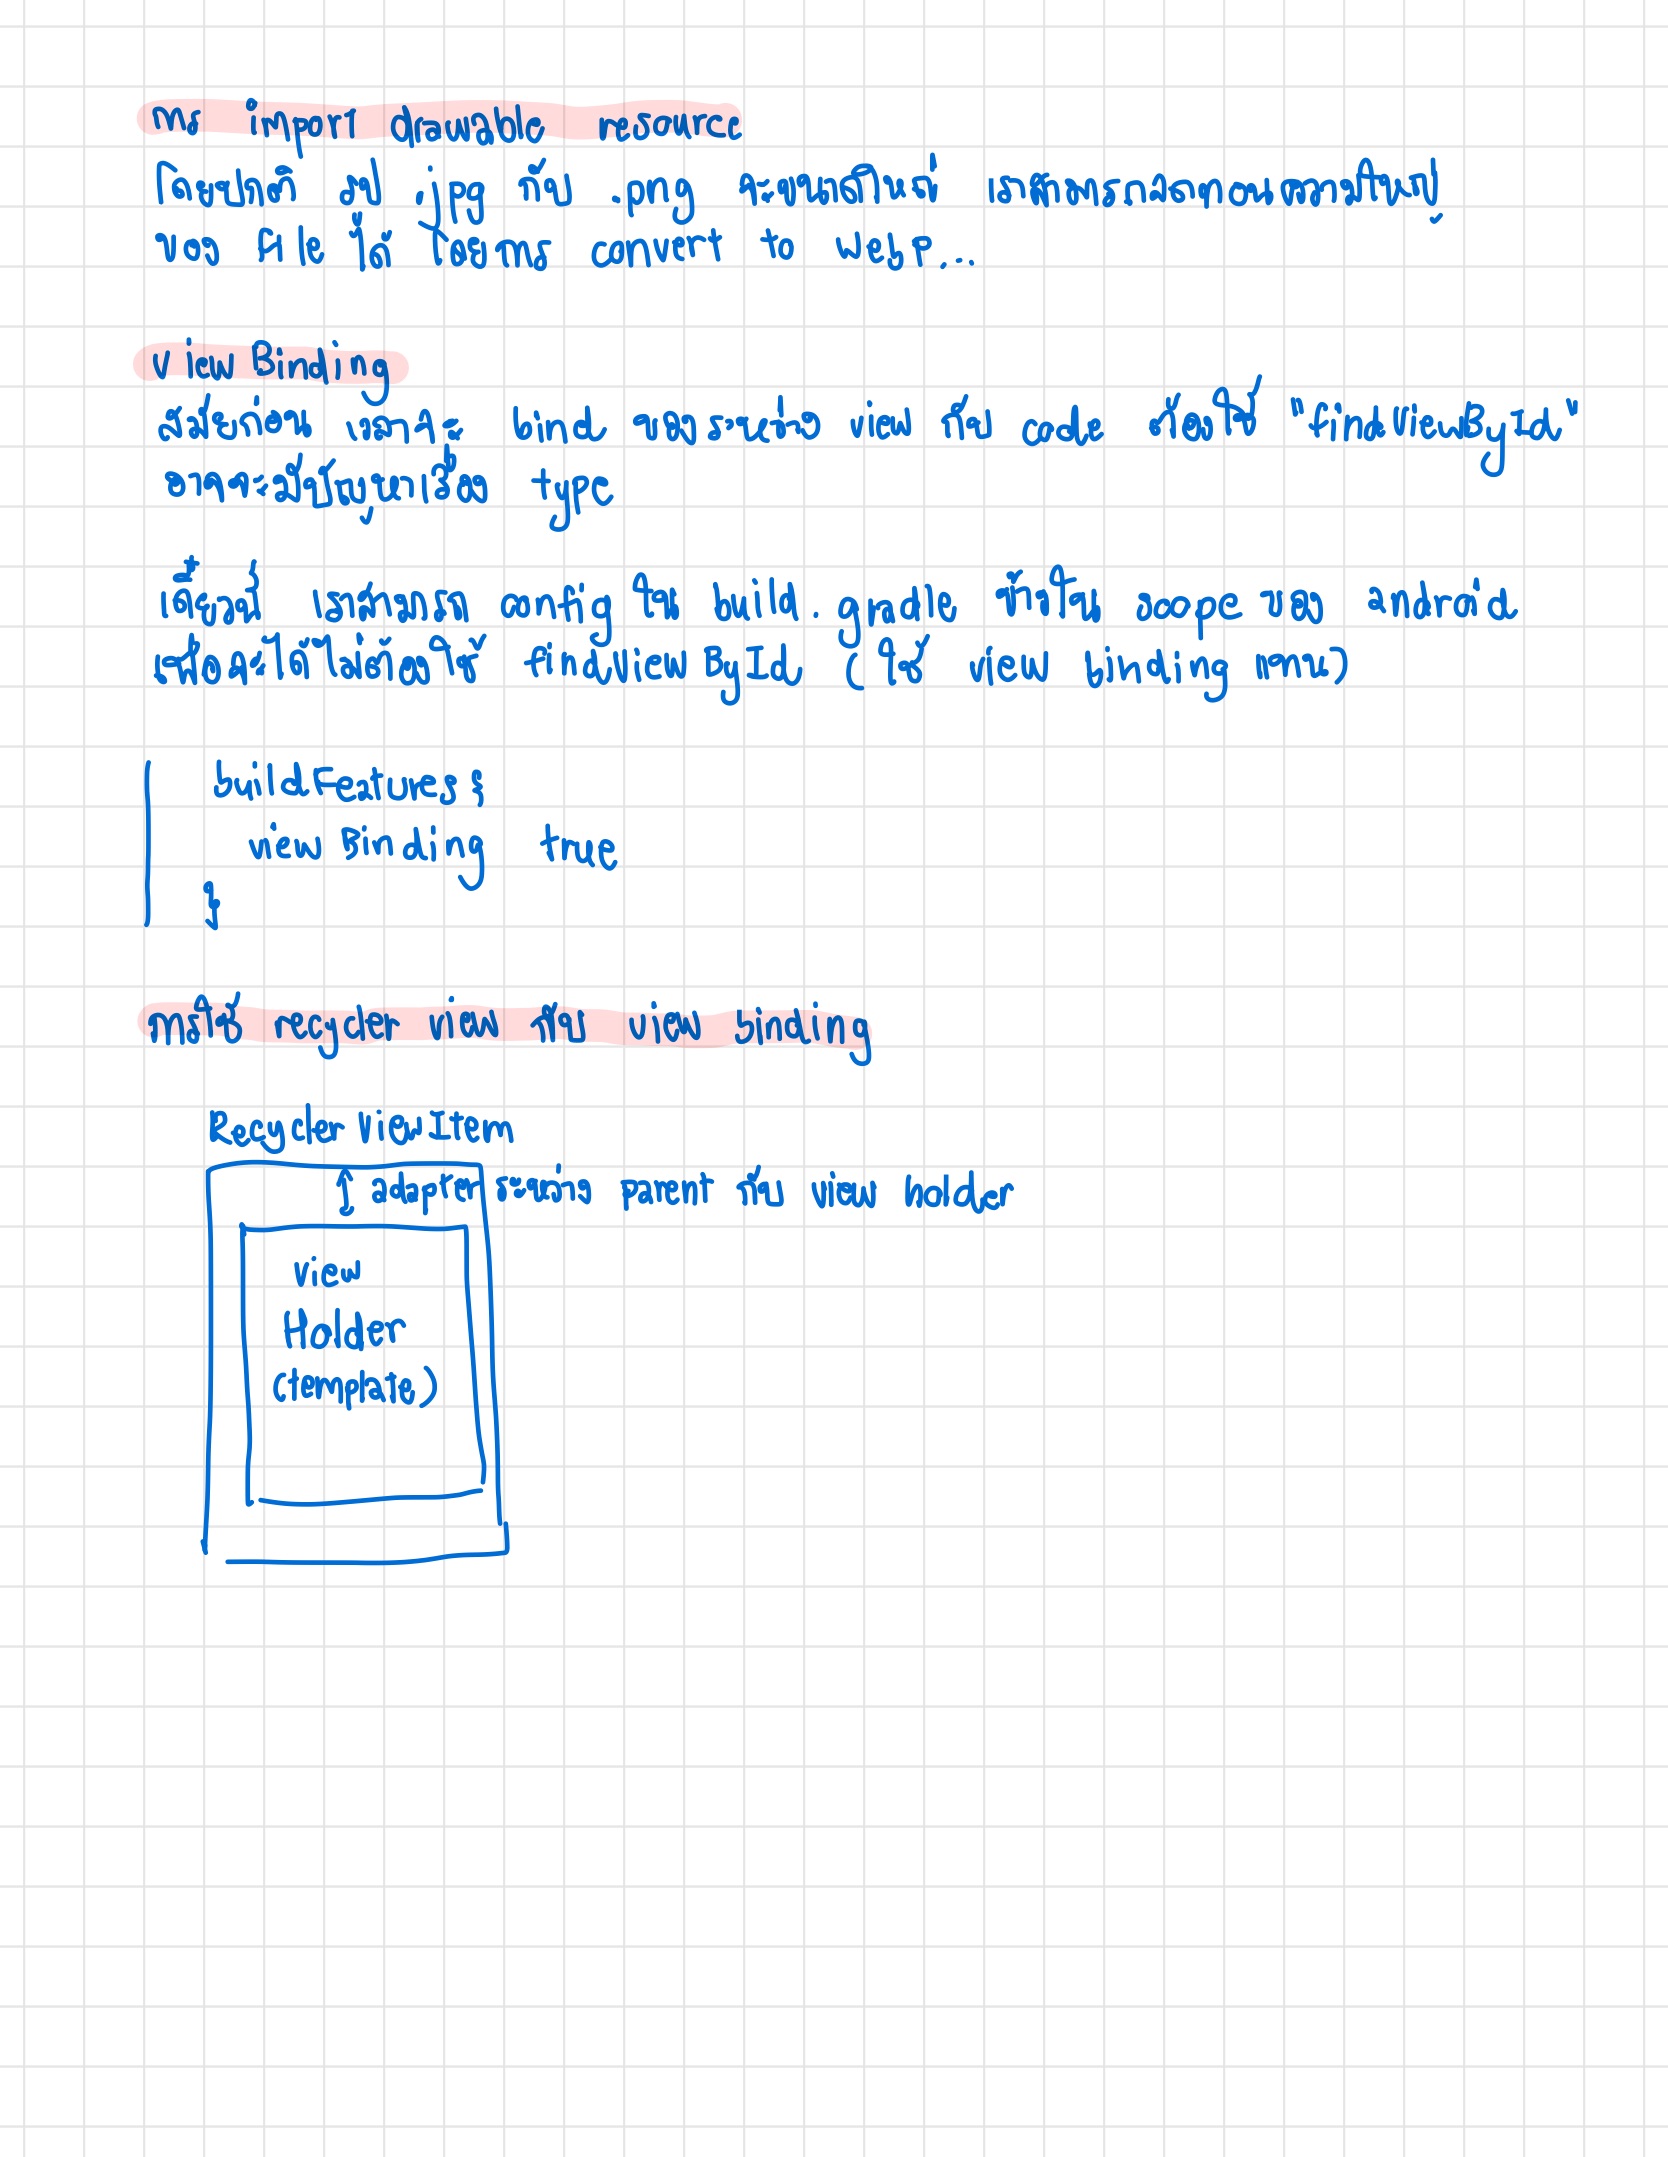 การ import drawable resource
โดยปกติ รูป .jpg กับ .png จะขนาดใหญ่ เราสามารถลดทอนความใหญ่
ของ file ได้ โดยการ convert to webp...
view Binding
สมัยก่อน เวลาจะ bind ของระหว่าง view กับ code ต้องใช้ "findViewById"
อาจจะมีปัญหาเรื่อง type
เดี๋ยวนี้ เราสามารถ config ใน build.gradle ข้างใน scope ของ android
เพื่อจะได้ไม่ต้องใช้ findViewById (ใช้ view binding แทน)
buildFeatures {
viewBinding true
}
การใช้ recycler view กับ view binding
Recycler ViewItem
adapter ระหว่าง parent กับ view holder
View
Holder
(template)